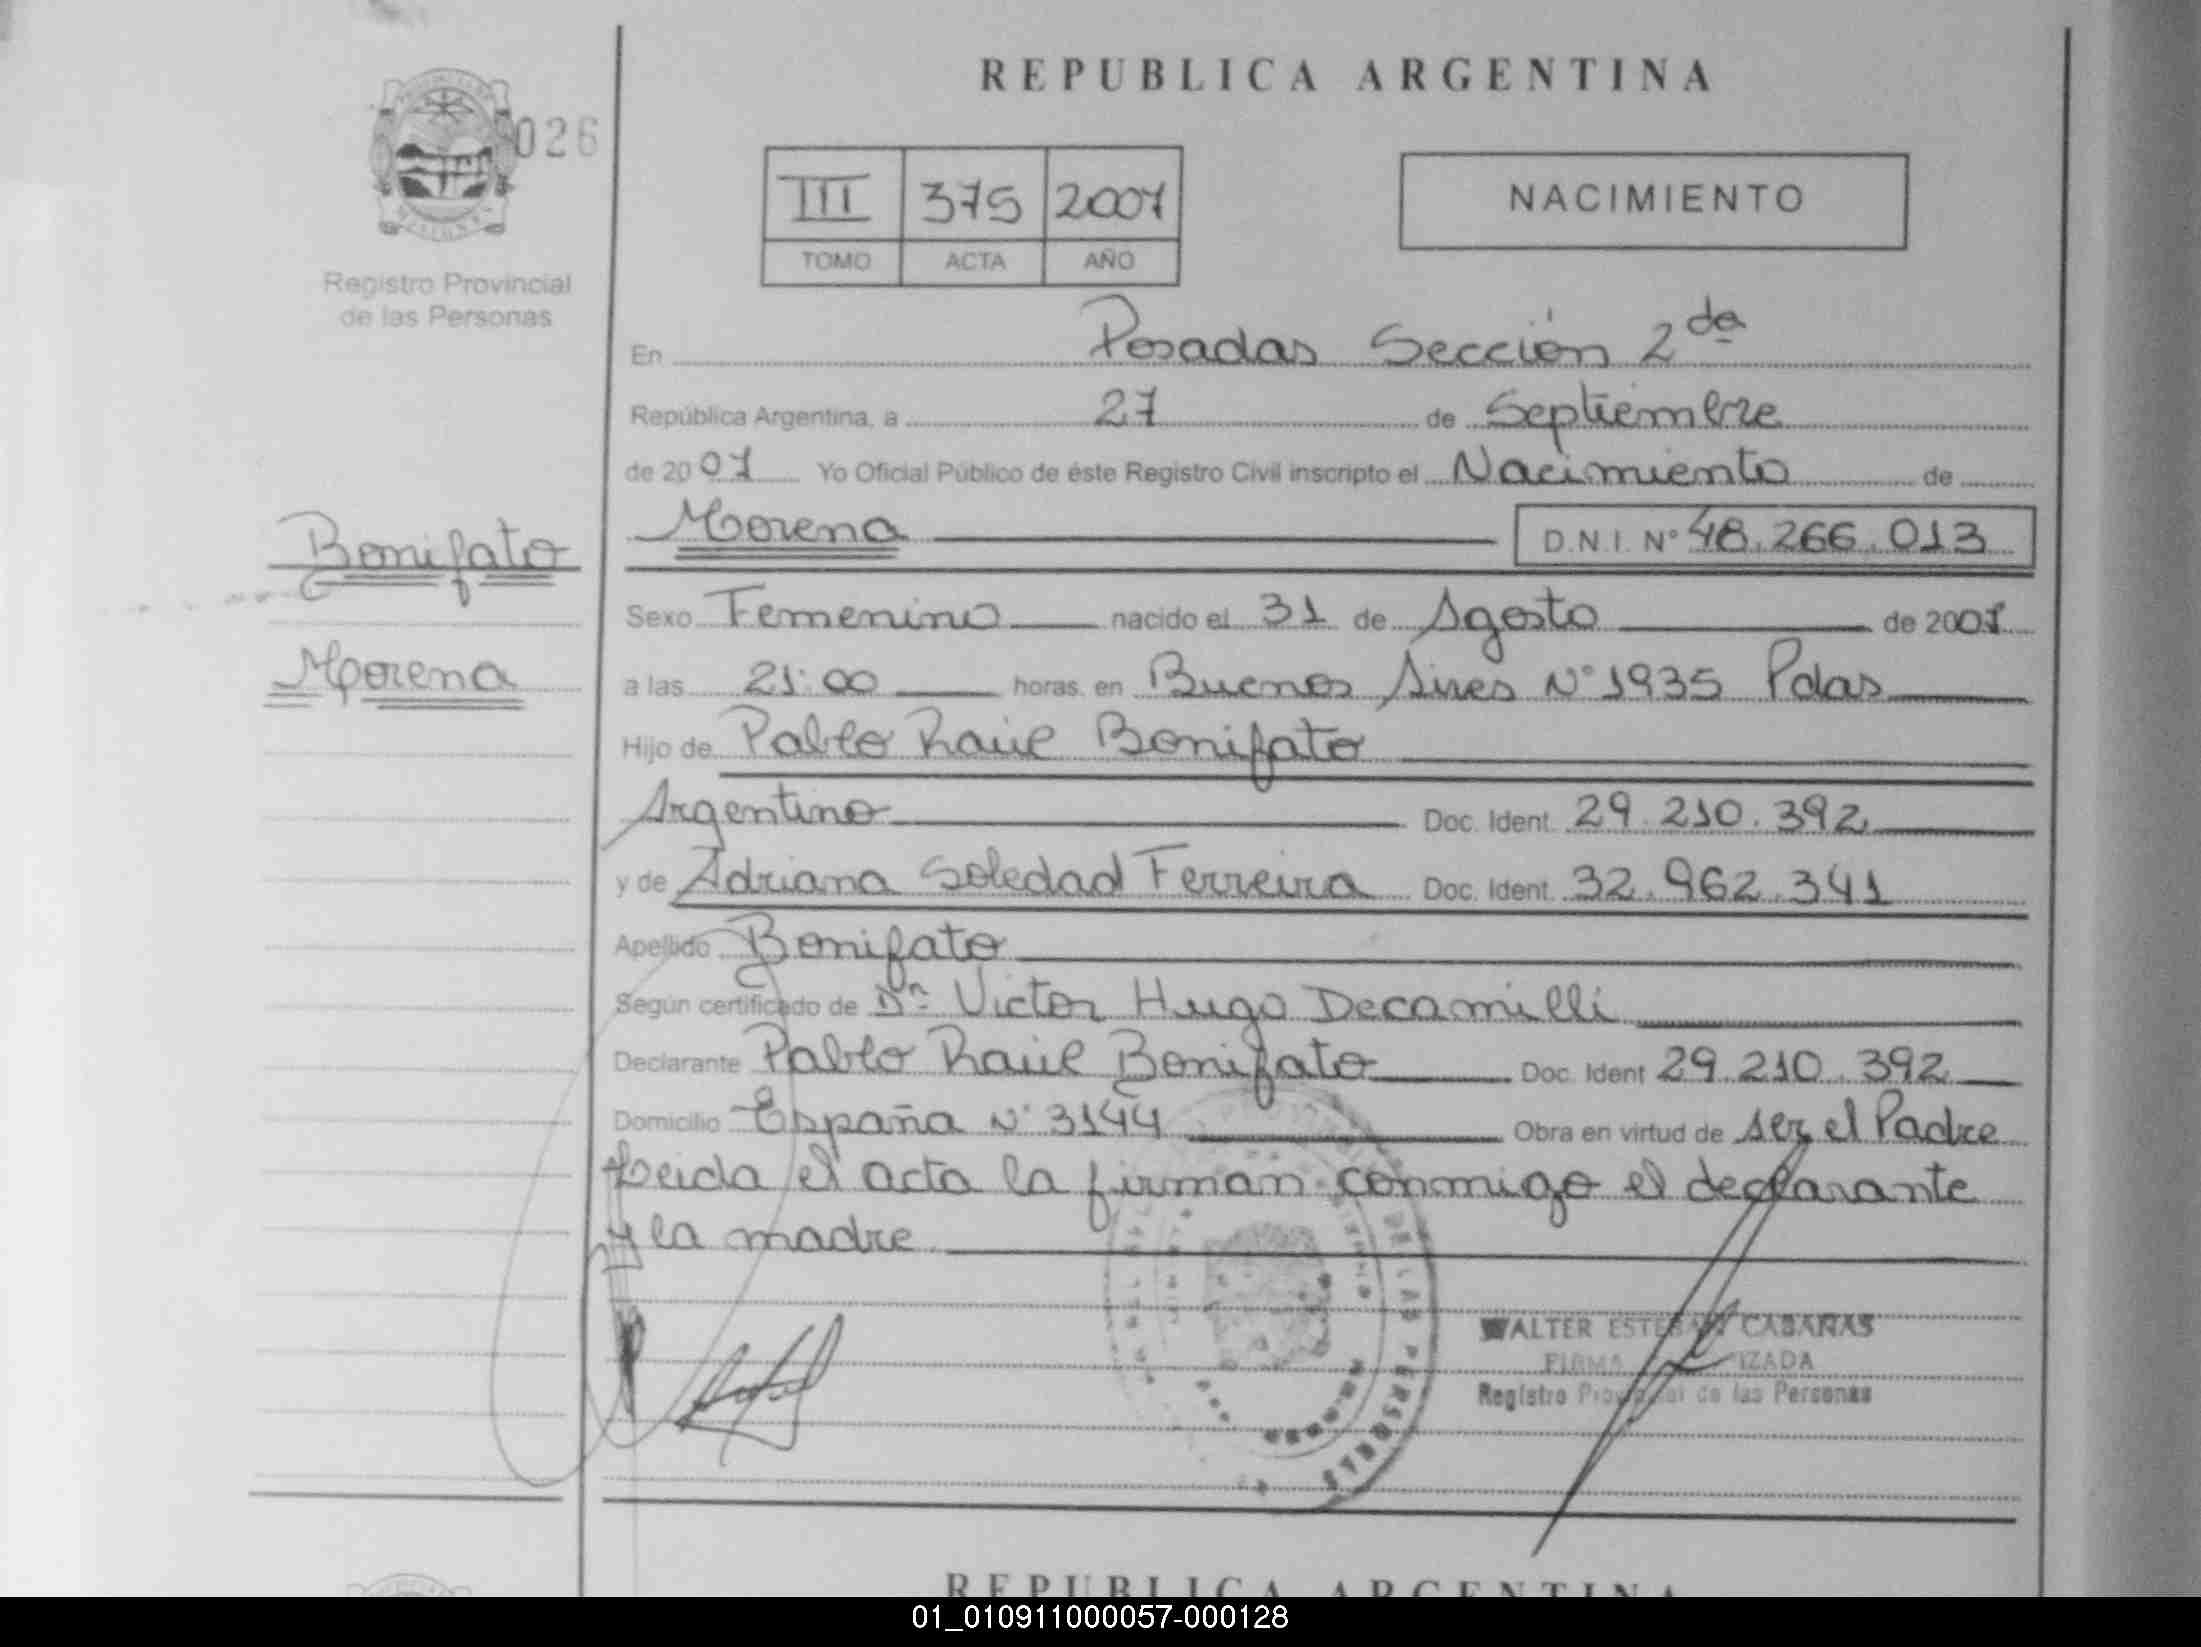 REPUBLICA ARGENTINA
026
III 375 2007
TOMO ACTA AÑO
NACIMIENTO
Registro Provincial
de las Personas
En Posadas Sección 2da
República Argentina, a 27 de Septiembre
de 2007 Yo Oficial Público de éste Registro Civil inscripto el Nacimiento de
Bonifato
Morena
Morena D.N.I. Nº 48.266.013
Sexo Femenino nacido el 31 de Agosto de 2007
a las 21:00 horas. en Buenos Aires Nº 1935 Pdas
Hijo de Pablo Raúl Bonifato
Argentino Doc. Ident. 29.210.392
y de Adriana Soledad Ferreira Doc. Ident. 32.962.341
Apellido Bonifato
Según certificado de Dr. Victor Hugo Decamilli
Declarante Pablo Raúl Bonifato Doc. Ident 29.210.392
Domicilio España Nº 3144 Obra en virtud de ser el Padre
Leida el acta la firman conmigo el declarante
y la madre
DE LAS PERSONAS
WALTER ESTEBAN CABAÑAS
FIRMA
Registro Provincial de las Personas
REPUBLICA ARGENTINA
01_010911000057-000128